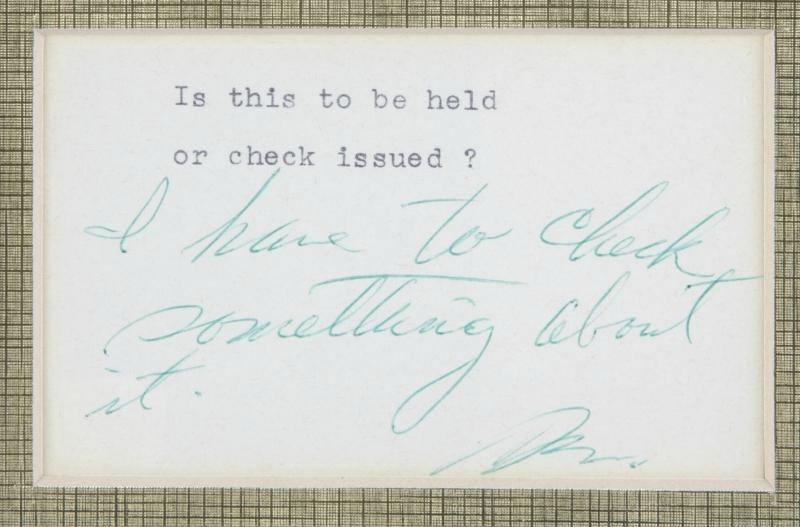 Is this to be held
or check issued ?
I have to check
something about
it.